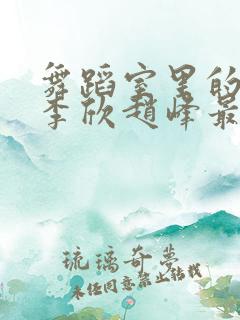 舞蹈室里的
李欣赵峰最
琉璃奇梦
未经同意禁止转载